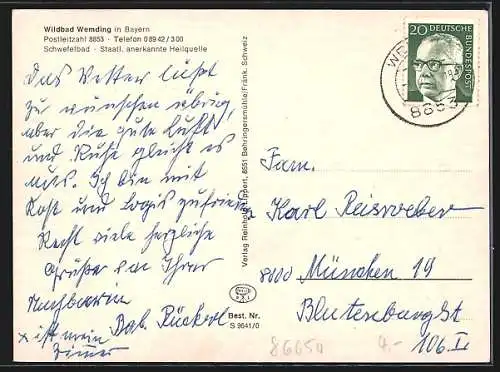 Wildbad Wemding in Bayern
Postleitzahl 8853 - Telefon 0 89 42 / 3 00
Schwefelbad · Staatl. anerkannte Heilquelle
Das Wetter läßt
zu wünschen übrig,
aber die gute Luft
und Ruhe gleicht es
aus. Ich bin mit
Kost und Logis zufrieden
Recht viele herzliche
Grüße an Ihrer
Nachbarin
Bab. Rückerl
x ist mein
Zimmer
Verlag Reinhold Lippert, 8551 Behringersmühle/Fränk. Schweiz
Best. Nr.
S 9641/0
20 DEUTSCHE
BUNDESPOST
8853
Fam.
Karl Reisweber
8000 München 19
Blutenburgst
106 I
86650
4.-